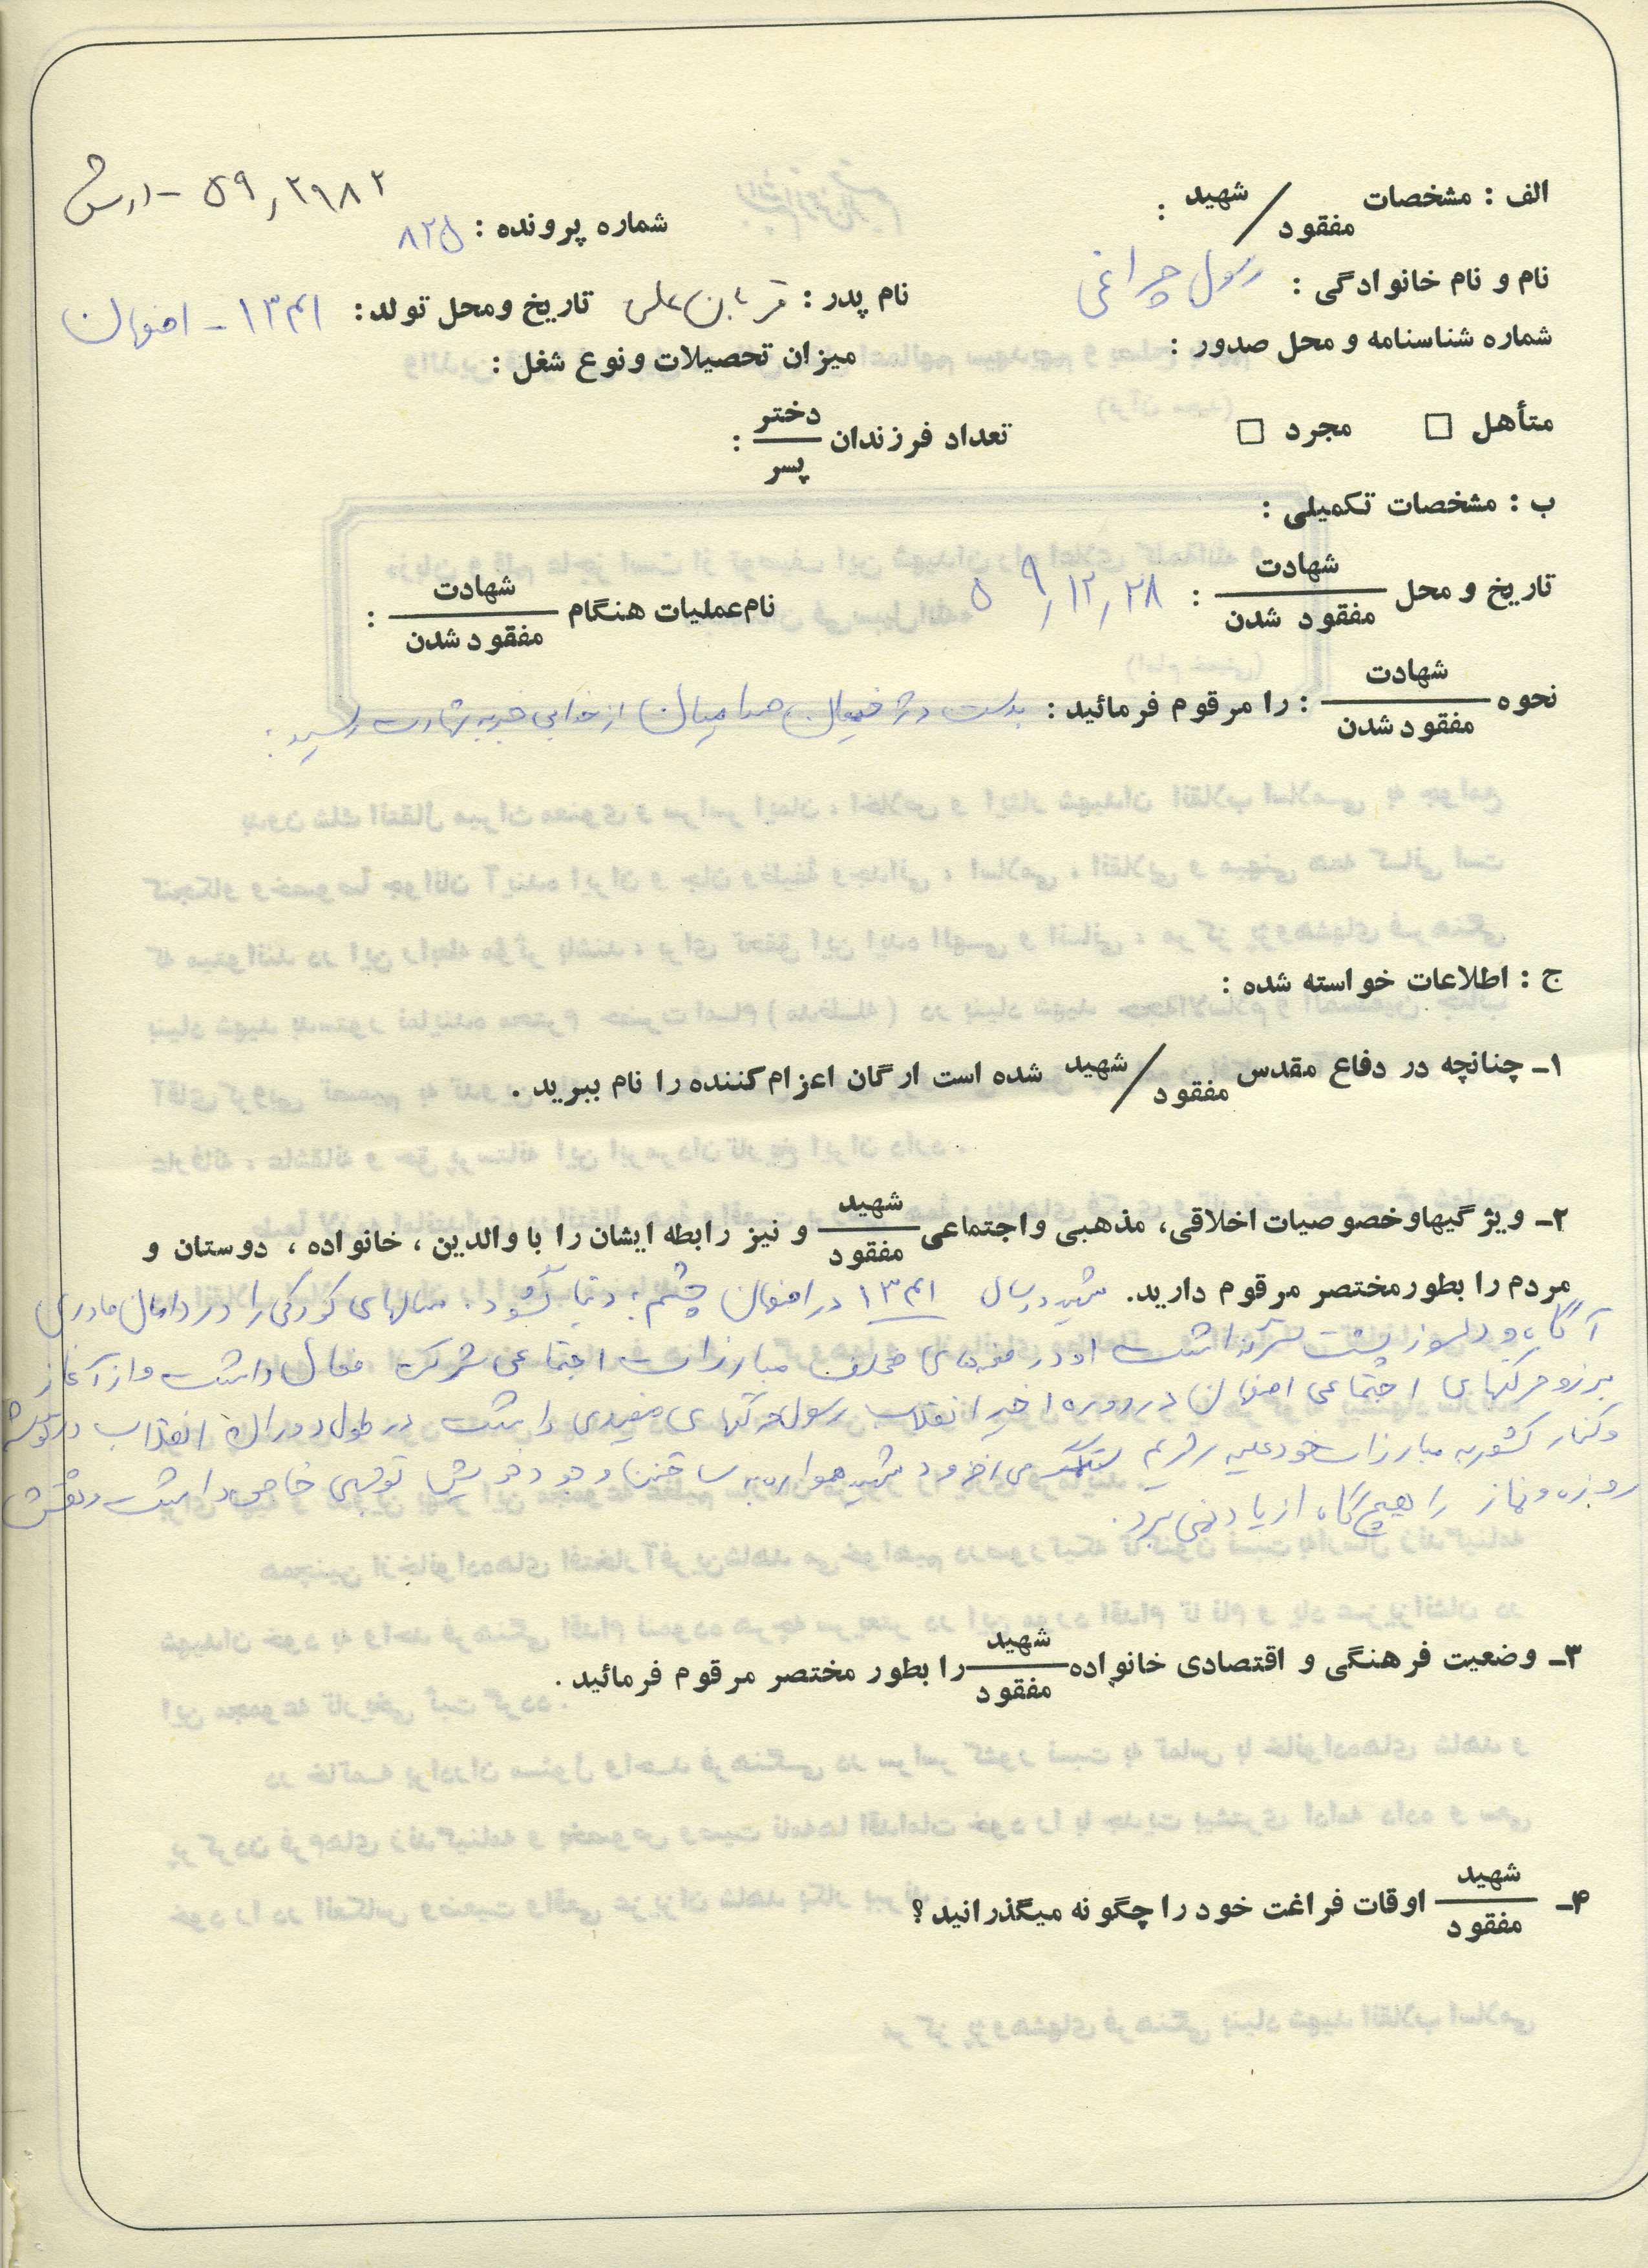 ۵۹,۲۹۸۲ - ارتش
الف : مشخصات شهید / مفقود :
شماره پرونده : ۸۲۵
نام و نام خانوادگی : رسول چراغی
نام پدر : قربانعلی
تاریخ ومحل تولد : ۱۳۴۱ - اصفهان
شماره شناسنامه و محل صدور :
میزان تحصیلات و نوع شغل :
متأهل □ مجرد □
تعداد فرزندان دختر / پسر :
ب : مشخصات تکمیلی :
تاریخ و محل شهادت / مفقود شدن : ۵۹,۱۲,۲۸
نام عملیات هنگام شهادت / مفقود شدن :
نحوه شهادت / مفقود شدن : را مرقوم فرمائید : بدست دژخیمان صدامیان از خدایی خبر به شهادت رسید :
ج : اطلاعات خواسته شده :
۱ـ چنانچه در دفاع مقدس شهید / مفقود شده است ارگان اعزام کننده را نام ببرید .
۲ـ ویژگیها و خصوصیات اخلاقی، مذهبی و اجتماعی شهید / مفقود و نیز رابطه ایشان را با والدین ، خانواده ، دوستان و
مردم را بطور مختصر مرقوم دارید. شهید در سال ۱۳۴۱ در اصفهان چشم به دنیا گشود . سالهای کودکی را در دامان مادری
آگاه و دلسوز پشت سر گذاشت او در صحنه های مختلف مبارزات اجتماعی شرکت فعال داشت و از آغاز
بروز حرکتهای اجتماعی اصفهان در دوره اخیر انقلاب رسول حرکتهای مفیدی داشت در طول دوران انقلاب در گوشه
و کنار کشور به مبارزات خود علیه رژیم می افزود شهید همواره به ساختن وجود خویش توجهی خاص داشت و نقش
روزه و نماز را هیچگاه از یاد نمی برد .
۳ـ وضعیت فرهنگی و اقتصادی خانواده شهید / مفقود را بطور مختصر مرقوم فرمائید .
۴ـ شهید / مفقود اوقات فراغت خود را چگونه میگذرانید ؟